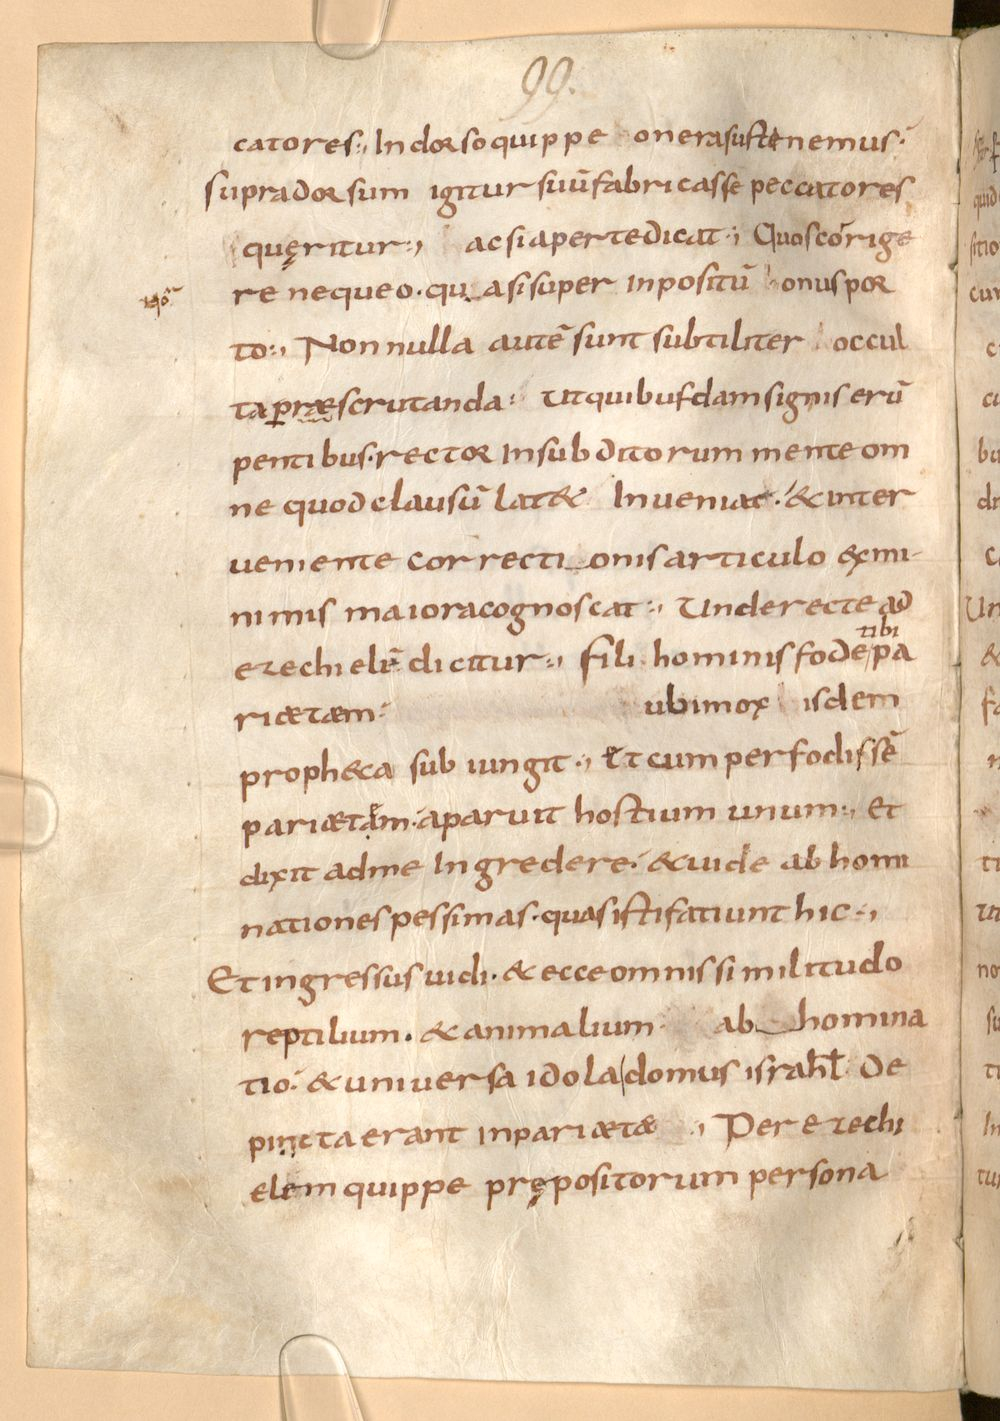 99.
catores·, In dorso quippe onera sustenemus·
supra dorsum igitur suū fabricasse peccatores
quęritur·, ac si aperte dicat·, Quos corrige
re nequeo· quasi super inpositū onus por
to·, Non nulla autē sunt subtiliter occul
ta præscrutanda· Ut quibusdam signis erū
pentibus· rector in subditorum mente om
ne quod clausū lat& Inveniat· & inter
veniente correctionis articulo ex mi-
nimis maiora cognoscat·, Unde recte ad
ezechielē dicitur·, fili hominis fode tibi pa
riætæm· ubi mox isdem
proph&a subiungit·, Et cum perfodissē
pariætam· aparuit hostium unum·, Et
dixit ad me Ingredere· & vide abhomi
nationes pessimas· quas isti fatiunt hic·,
Et ingressus vidi· & ecce omnis similitudo
reptilium· & animalium· abhomina
tio· & universa idola domus israhł· De
pincta erant in pariætæ·, Per ezechi
elem quippe prępositorum persona